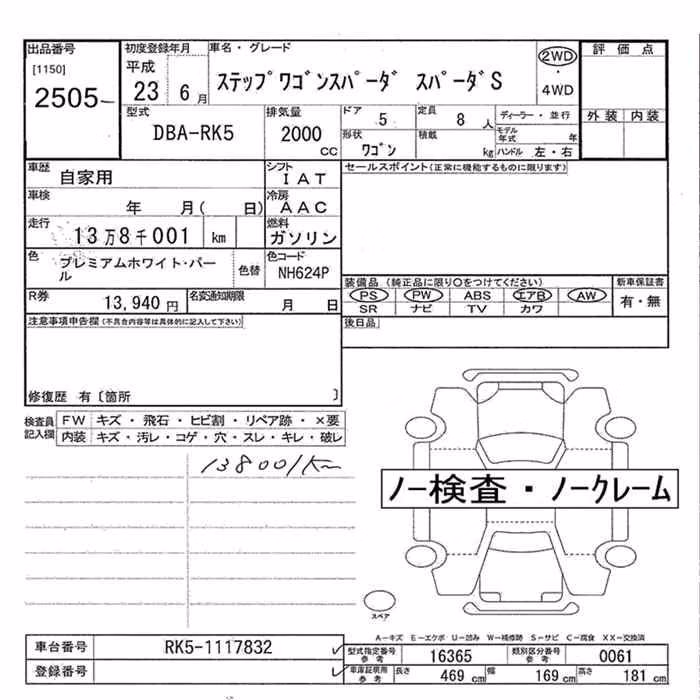 出品番号 初度登録年月 車名・グレード 評価点
[1150] 平成 ステップワゴンスパーダ スパーダS 2WD ・ 4WD
2505 23 6月
型式 排気量 ドア 5 定員 8人 ディーラー・並行 外装 内装
DBA-RK5 2000cc 形状 ワゴン 積載 kg モデル年式 年 ハンドル 左・右
車歴 自家用 シフト IAT セールスポイント(正常に機能するものに限ります)
車検 年 月( 日) 冷房 AAC
走行 13万8千001 km 燃料 ガソリン
色 プレミアムホワイト・パール 色替 色コード NH624P
装備品 (純正品に限り○をつけてください) 新車保証書
R券 13,940円 名変通知期限 月 日 PS PW ABS エアB AW 有・無
SR ナビ TV カワ
注意事項申告欄(不具合内容等は具体的に記入して下さい) 後日品
修復歴 有〔箇所 〕
検査員記入欄 FW キズ・飛石・ヒビ割・リペア跡・×要
内装 キズ・汚レ・コゲ・穴・スレ・キレ・破レ
138001km
ノー検査・ノークレーム
スペア
A−キズ E−エクボ U−凹み W−補修跡 S−サビ C−腐食 XX−交換済
車台番号 RK5-1117832 型式指定番号 参考 16365 類別区分番号 参考 0061
登録番号 車庫証明用 参考 長さ 469cm 幅 169cm 高さ 181cm